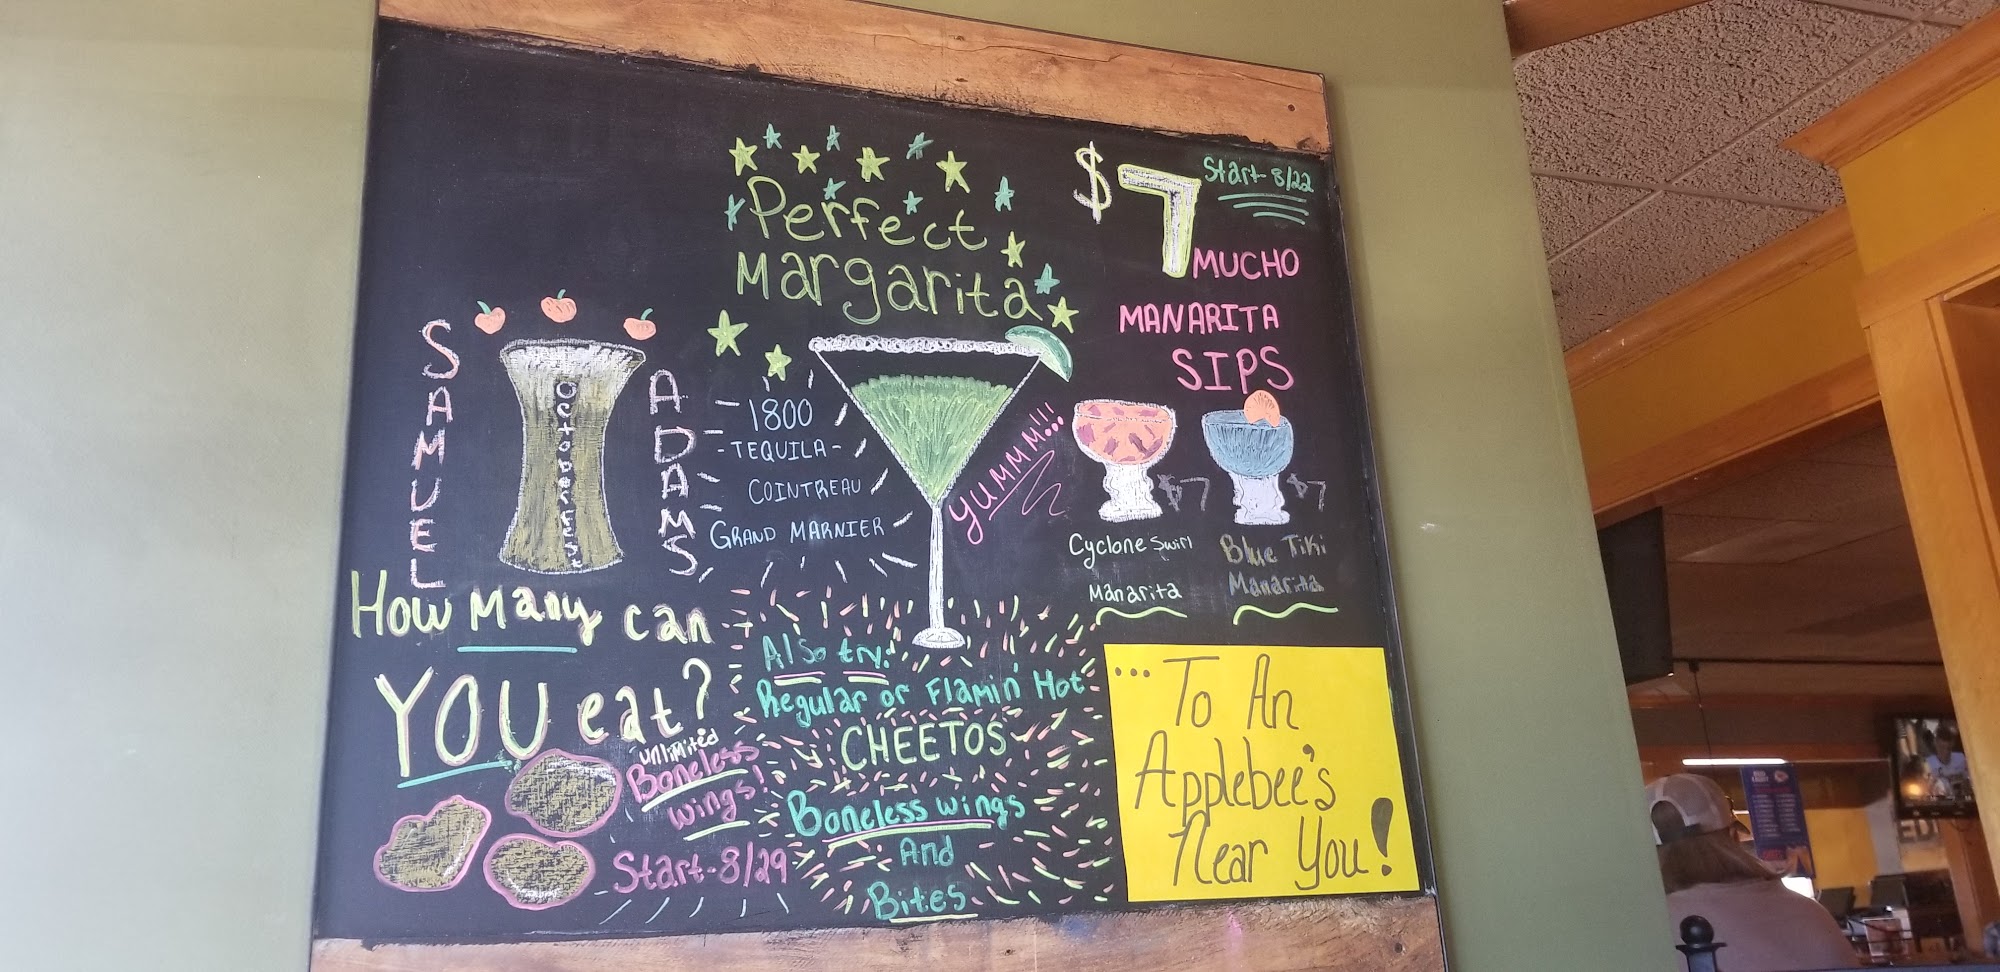 Perfect
Margarita
$7
Start 8/22
MUCHO
MANARITA
SIPS
SAMUEL
ADAMS
OctoberFest
1800
-TEQUILA-
COINTREAU
GRAND MARNIER
YUMMM!!!
$7
$7
Cyclone Swirl
Manarita
Blue Tiki
Manarita
How Many can
YOU eat?
unlimited
Boneless
wings!
Start-8/29
Also try:
Regular or Flamin' Hot
CHEETOS
Boneless wings
And
Bites
...To An
Applebee's
Near You!